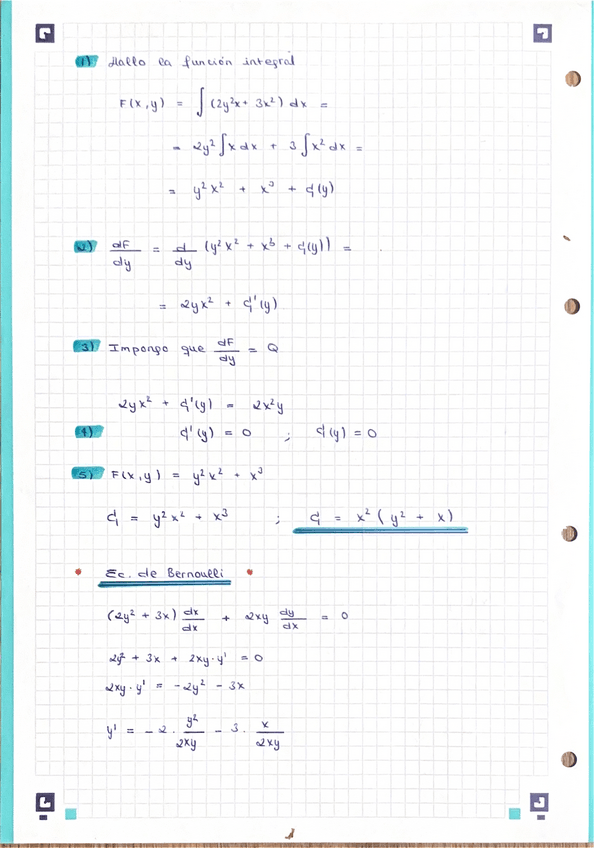 1) Hallo la función integral
F(x,y) = ∫ (2y²x + 3x²) dx =
= 2y² ∫ x dx + 3 ∫ x² dx =
= y² x² + x³ + G(y)
2) dF/dy = d/dy (y² x² + x³ + G(y)) =
= 2yx² + G'(y)
3) Impongo que dF/dy = Q
2yx² + G'(y) = 2x²y
4) G'(y) = 0 ; G(y) = 0
5) F(x,y) = y² x² + x³
G = y² x² + x³ ; G = x² ( y² + x )
• Ec. de Bernoulli •
(2y² + 3x) dx/dx + 2xy dy/dx = 0
2y² + 3x + 2xy · y' = 0
2xy · y' = -2y² - 3x
y' = -2 · y²/2xy - 3 · x/2xy